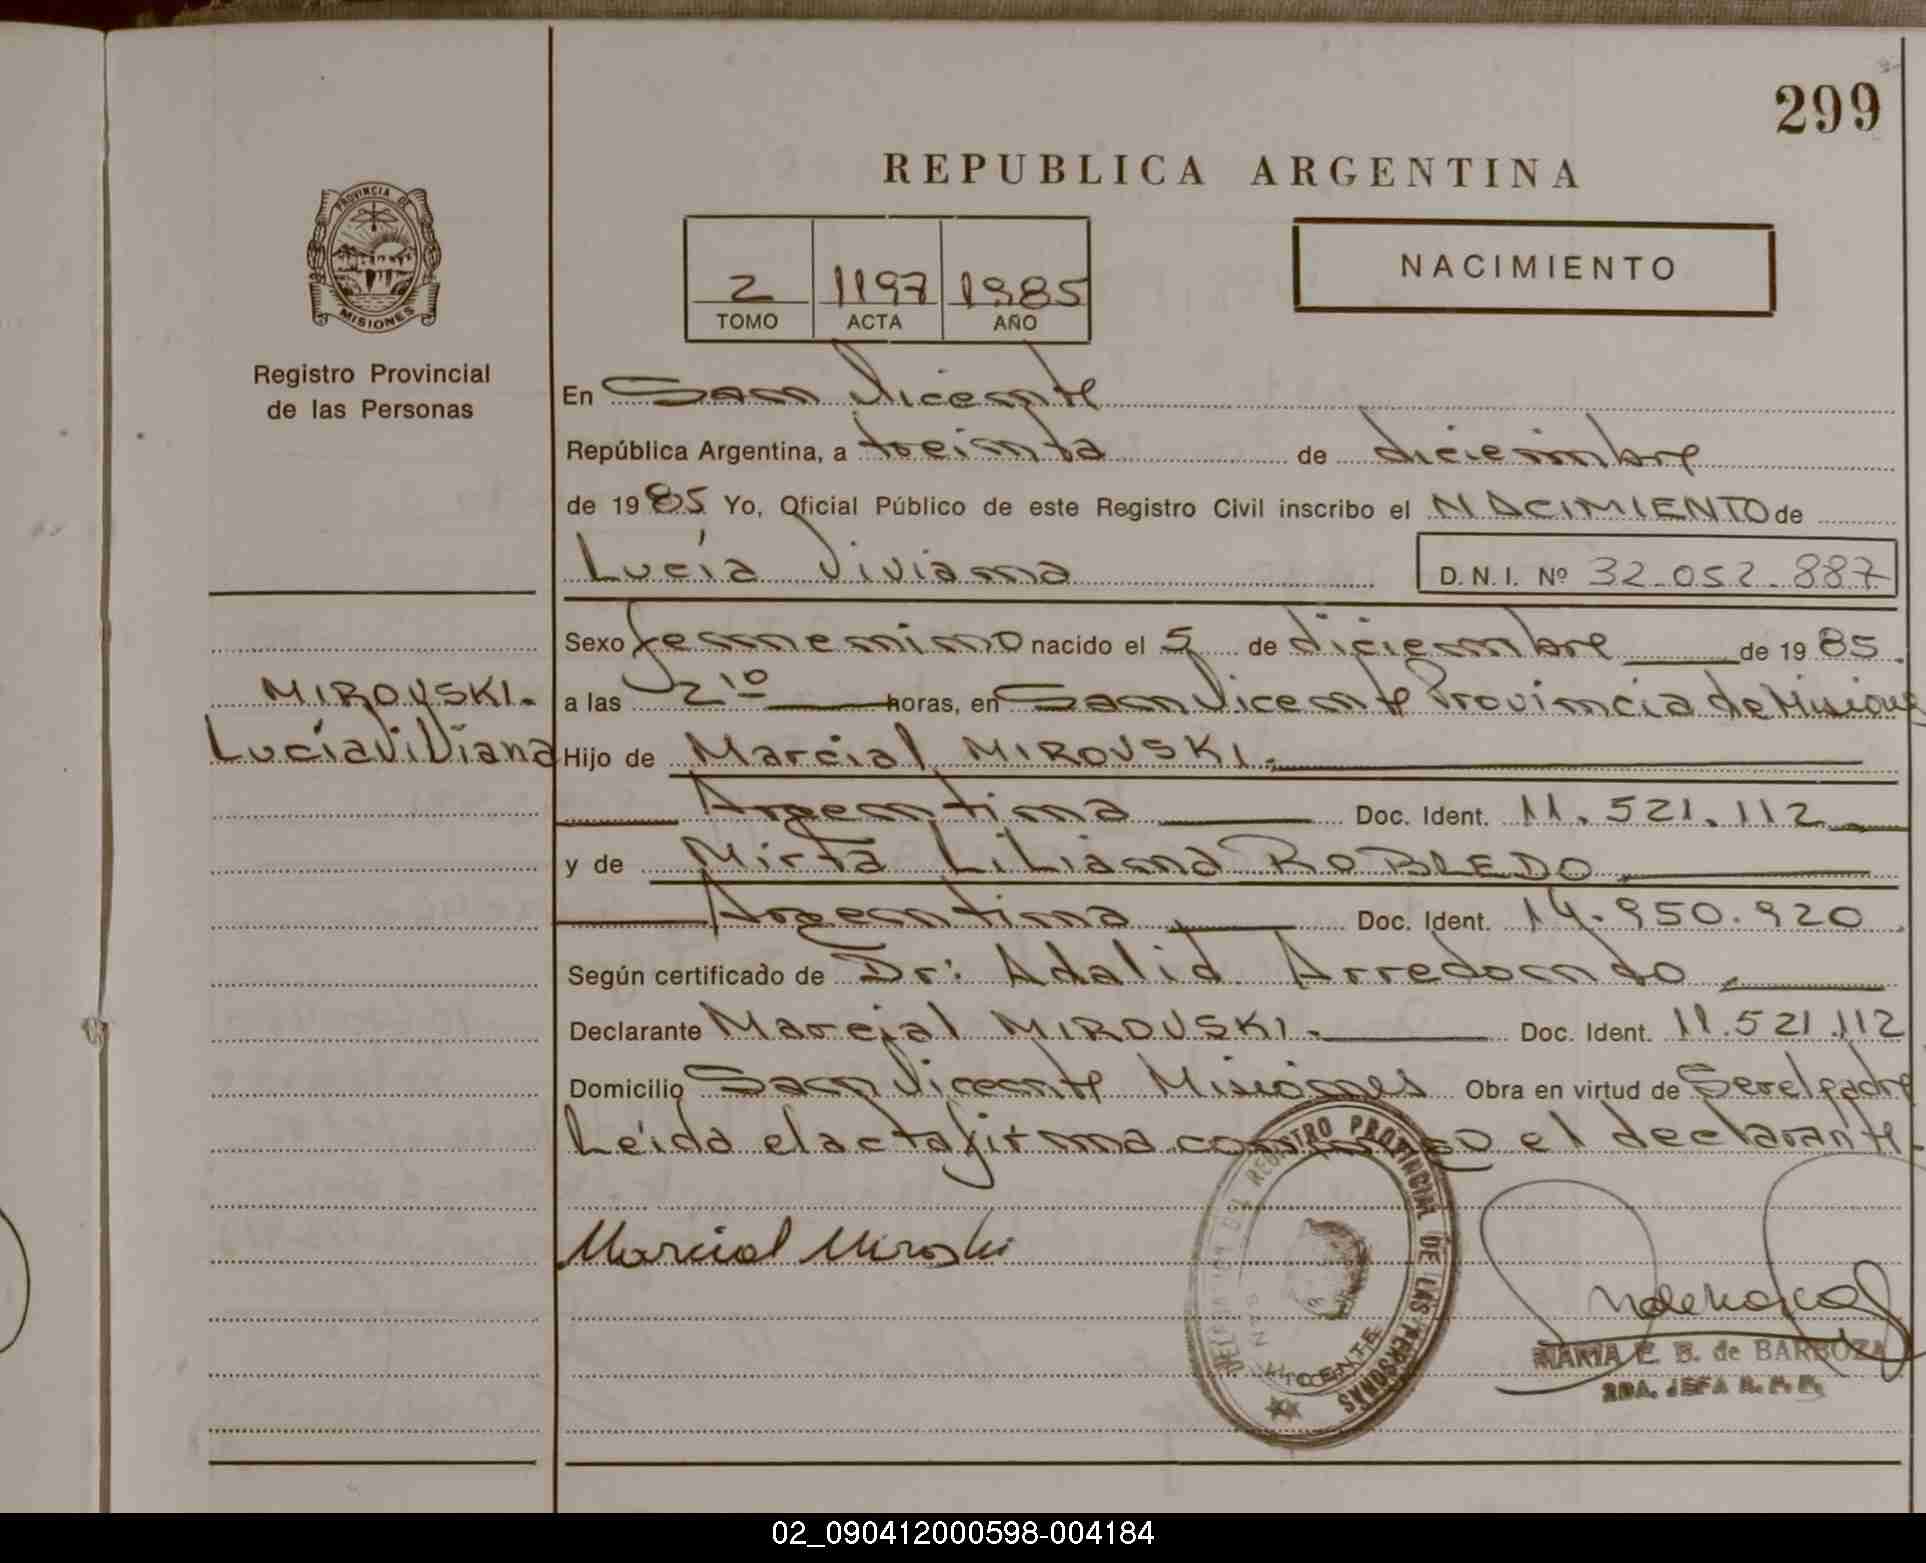 299
REPUBLICA ARGENTINA
PROVINCIA DE
MISIONES
Registro Provincial
de las Personas
2 1197 1985
TOMO ACTA AÑO
NACIMIENTO
En San Vicente
República Argentina, a treinta de diciembre
de 1985 Yo, Oficial Público de este Registro Civil inscribo el NACIMIENTO de
Lucía Viviana D. N. I. Nº 32.052.887
Sexo femenino nacido el 5 de diciembre de 1985.
MIROVSKI.
Lucía Viviana
a las 2 10 horas, en San Vicente Provincia de Misiones
Hijo de Marcial MIROVSKI.
Argentina Doc. Ident. 11.521.112
y de Mirta Liliana ROBLEDO
Argentina Doc. Ident. 14.950.920
Según certificado de Dr: Adalid Arredondo.
Declarante Marcial MIROVSKI. Doc. Ident. 11.521.112
Domicilio San Vicente Misiones Obra en virtud de Ser el padre
Leída el acta firma conmigo el declarante.
Marcial Miroski
DELEGACION DEL REGISTRO PROVINCIAL DE LAS PERSONAS
SAN VICENTE
MARIA E. B. de BARBOZA
2DA. JEFA R. P. P.
02_090412000598-004184